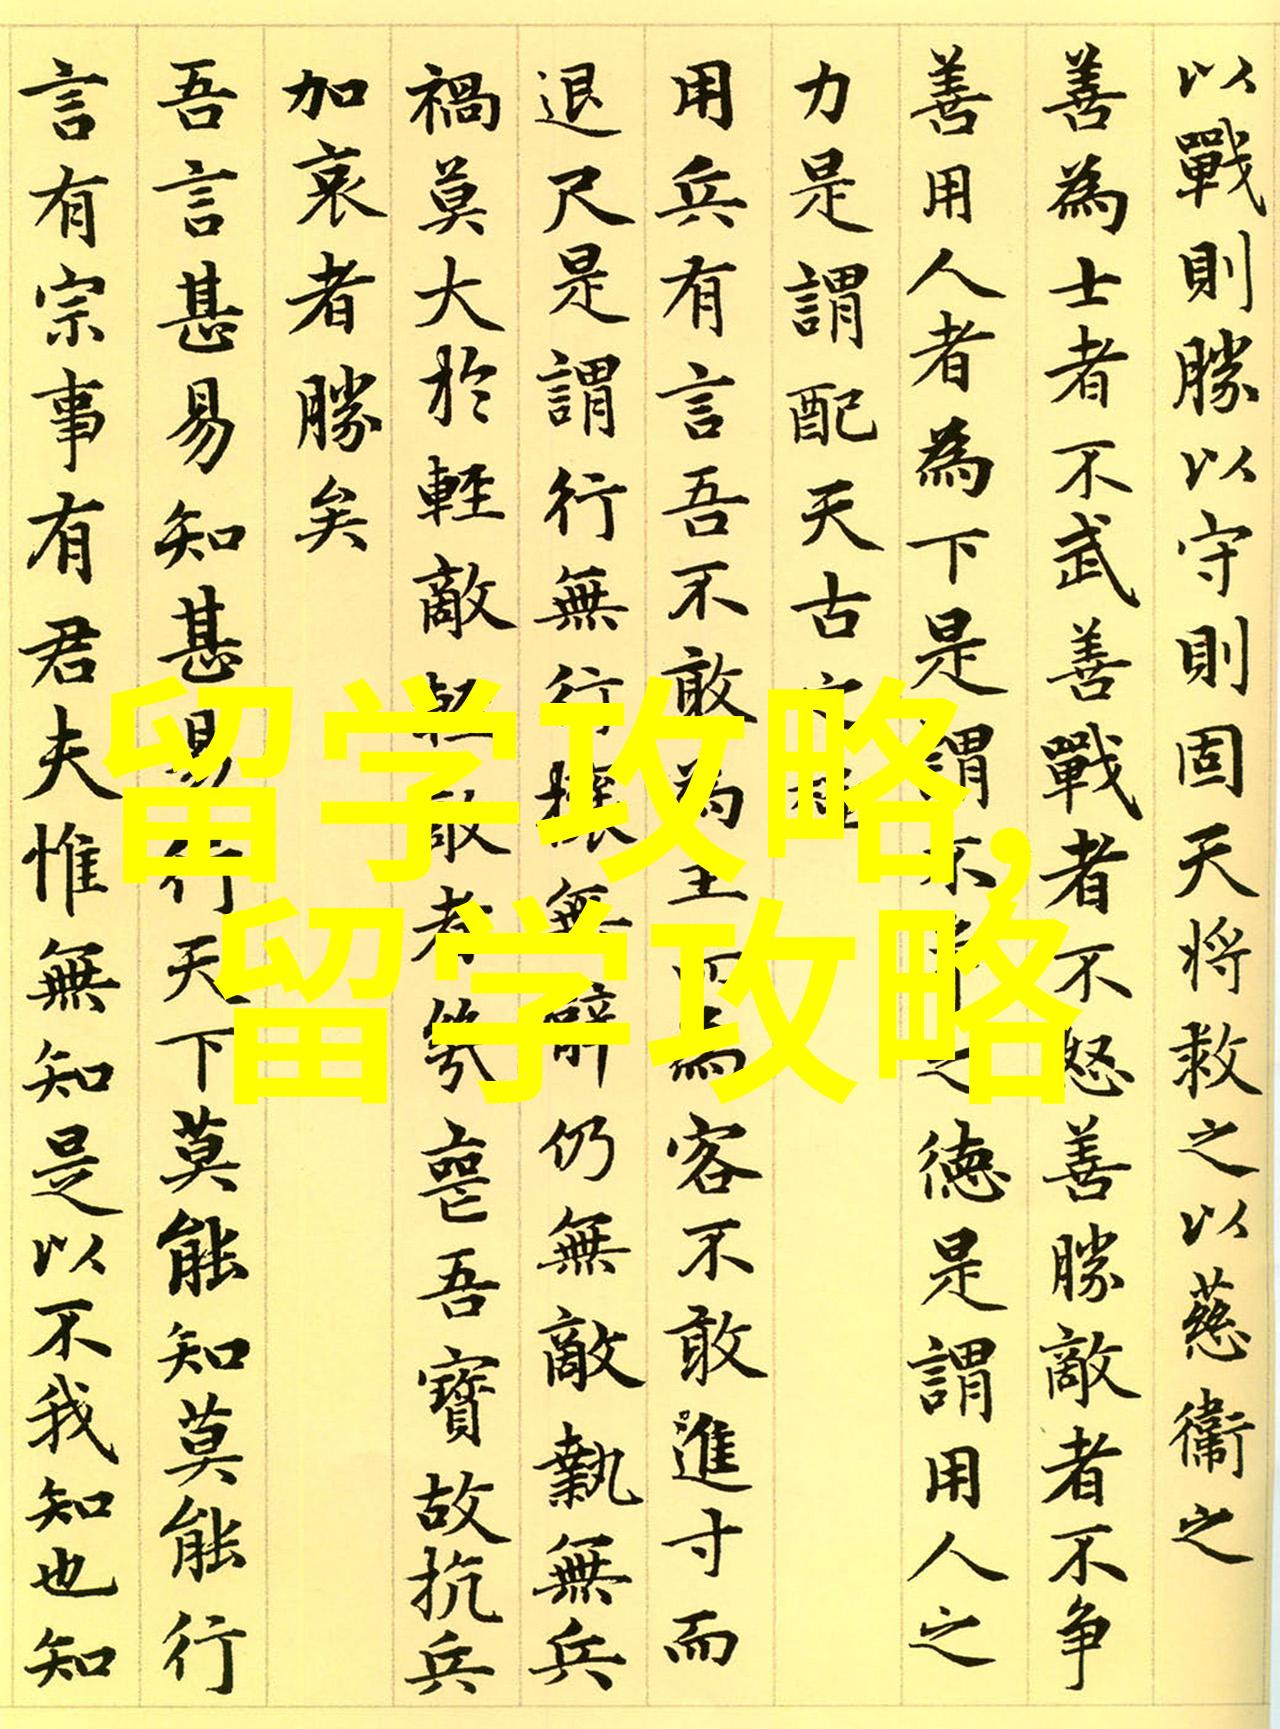 以戰則勝以守則固天将救之以慈衞之
善為士者不武善戰者不怒善勝敵者不争
善用人者為下是謂不之德是謂用人之
力是謂配天古
用兵有言吾不敢為主為客不敢進寸而
退尺是謂行無行攘無仍無敵執無兵
禍莫大於輕敵輕敵者吾寶故抗兵
加哀者勝矣
吾言甚易知甚易行天下莫能知莫能行
言有宗事有君夫惟無知是以不我知也知
留学攻略,
留学攻略